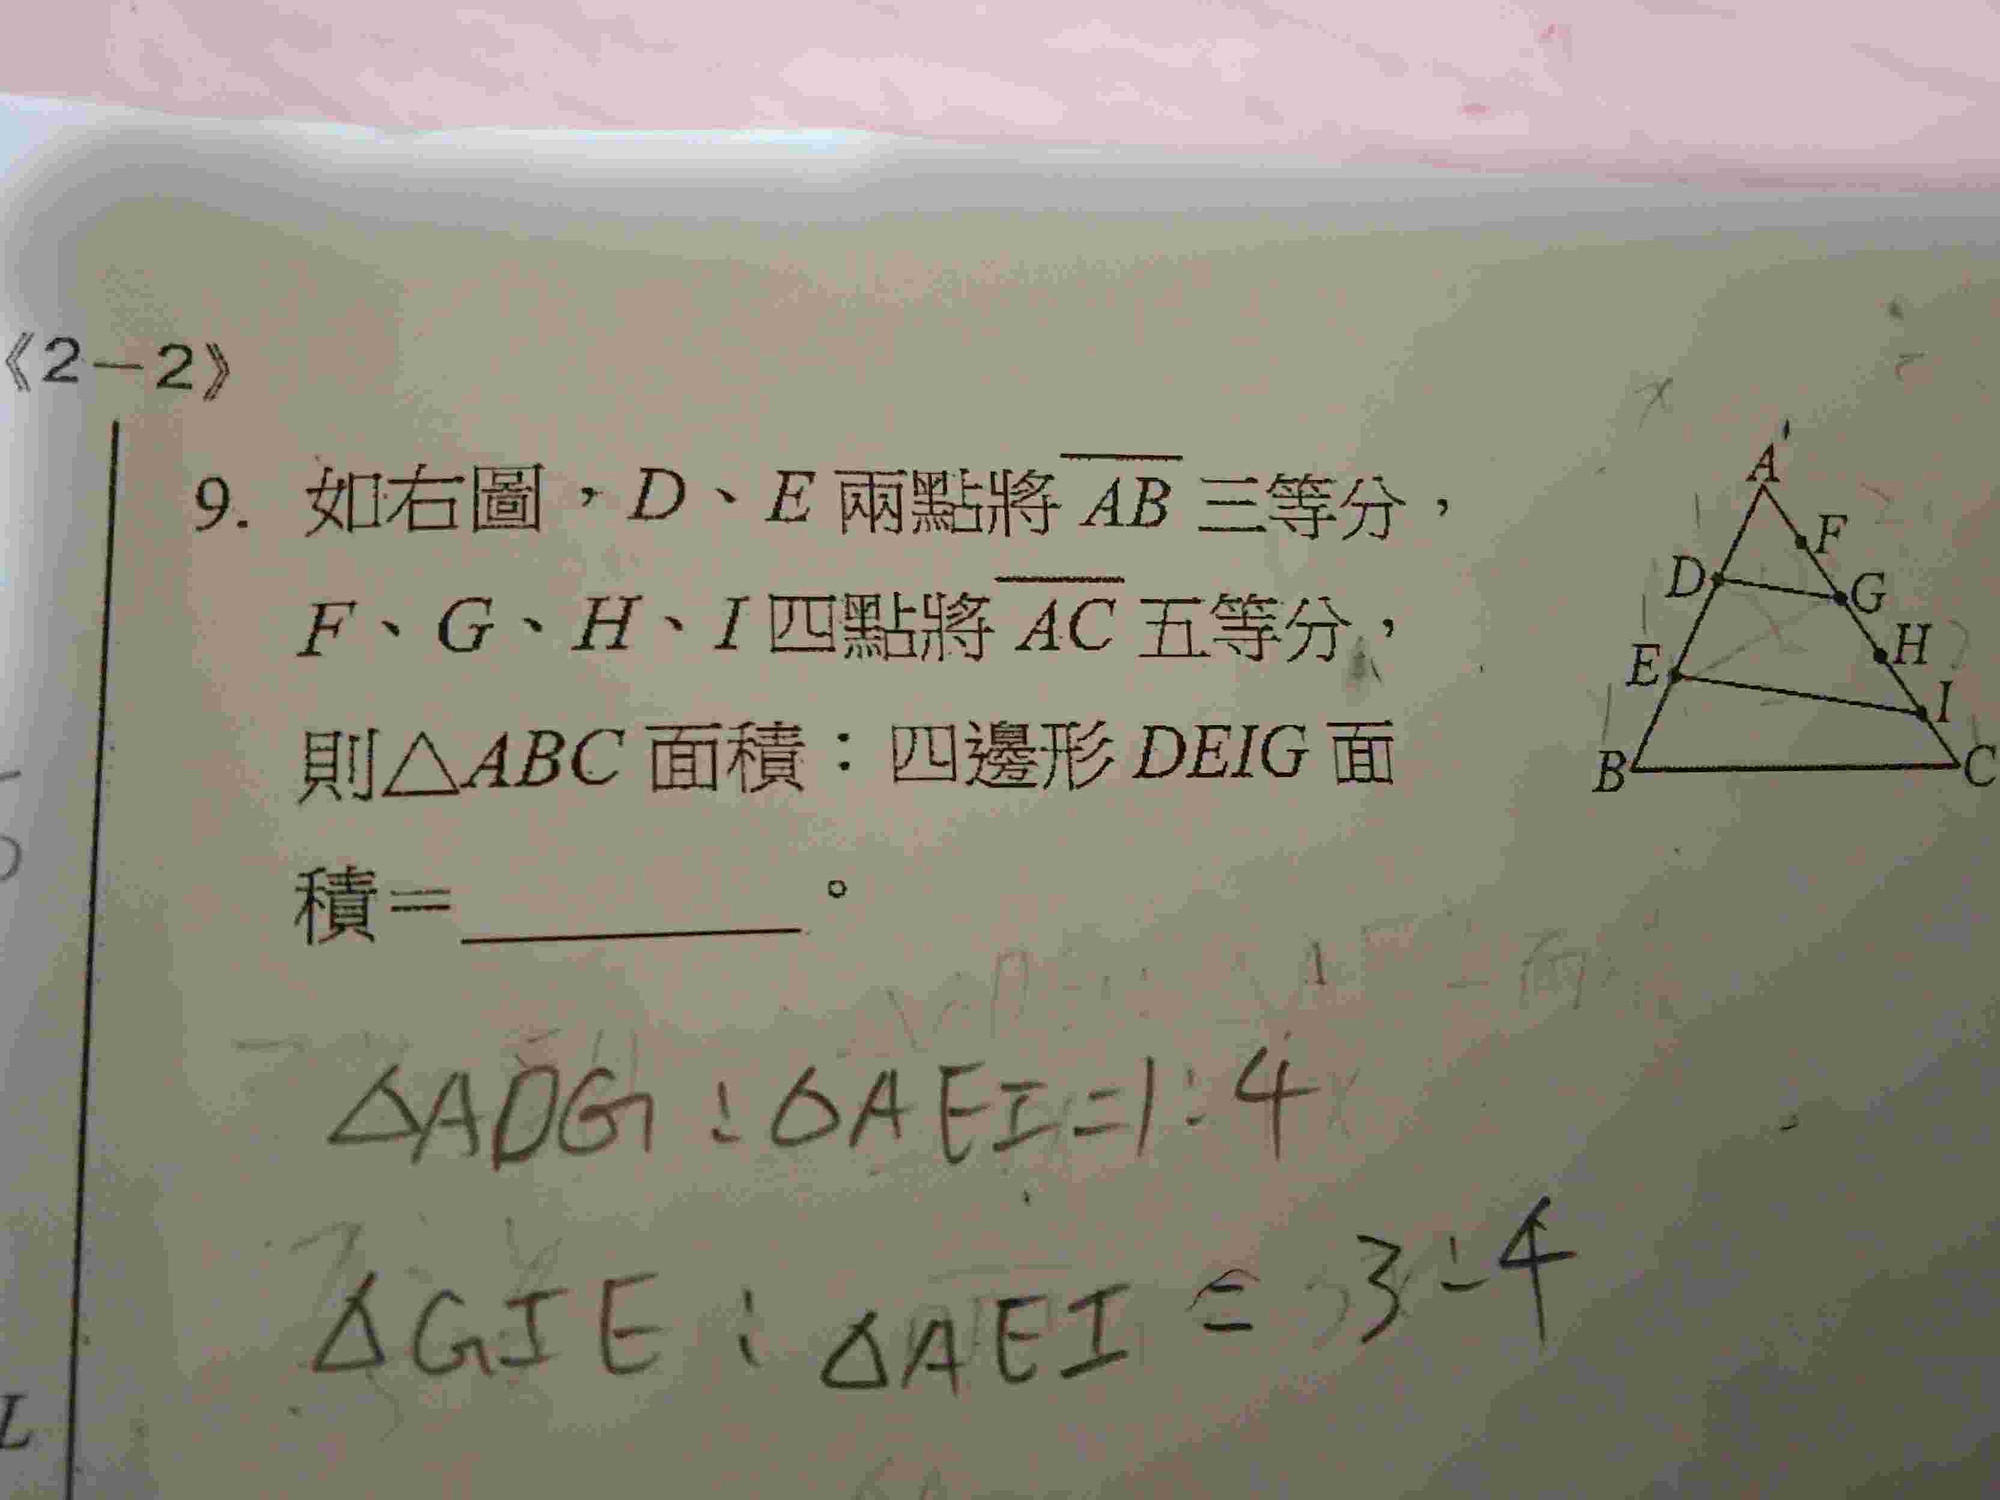 《2－2》
9. 如右圖，D、E 兩點將 AB 三等分，
F、G、H、I 四點將 AC 五等分，
則△ABC 面積：四邊形 DEIG 面
積＝________。
A
F
D
G
E
H
I
B
C
△ADG : △AEI = 1 : 4
△GIE : △AEI = 3 : 4
L